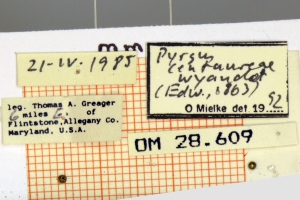 21-IV. 1985
Pyrgus
centaureae
wyandot
(Edw., 1863)
O Mielke det. 19 92
leg. Thomas A. Greager
6 miles E. of
Flintstone, Allegany Co.
Maryland, U.S.A.
OM 28.609